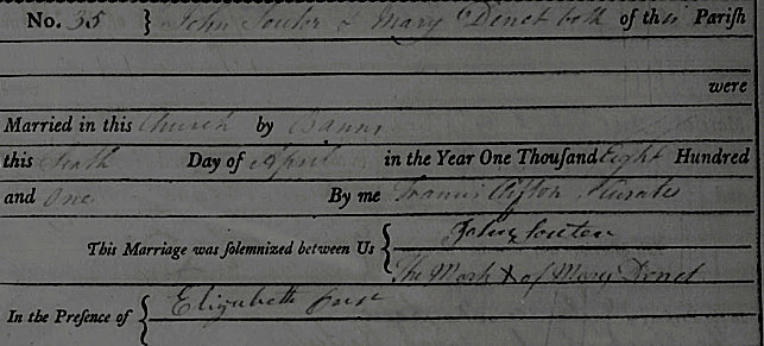 No. 35 } John Souter & Mary Denet both of this Pariſh
were
Married in this Church by Banns
this Sixth Day of April in the Year One Thouſand Eight Hundred
and One By me Francis Clifton Curate
This Marriage was ſolemnized between Us { John Souter
The Mark X of Mary Denet
In the Preſence of { Elizabeth